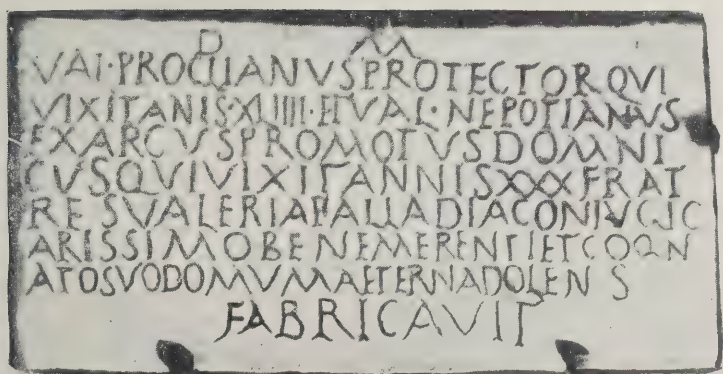 D M
VAL·PROCLIANVSPROTECTORQVI
VIXITANIS·XLIIII·ETVAL·NEPOTIANVS
EXARCVSPROMOTVSDOMNI
CVSQVIVIXITANNISXXXFRAT
RESVALERIAPALLADIACONIVGIC
ARISSIMOBENEMERENTIETCOGN
ATOSVODOMVMAETERNADOLENS
FABRICAVIT